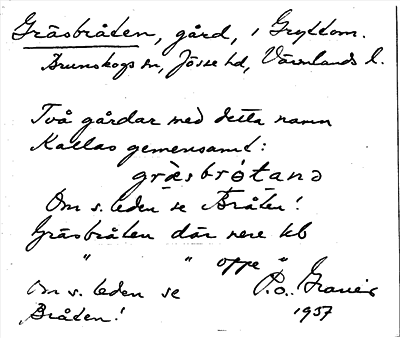 Gräsbråten, gård, i Gryttom.
Brunskogs sn, Jösse hd, Värmlands l.
Två gårdar med detta namn
Kallas gemensamt:
gräsbrɵ́tanə
Om s. leden se Bråten!
Gräsbråten där nere kb
" " oppe "
Om s. leden se P.O. Graner
Bråten! 1937